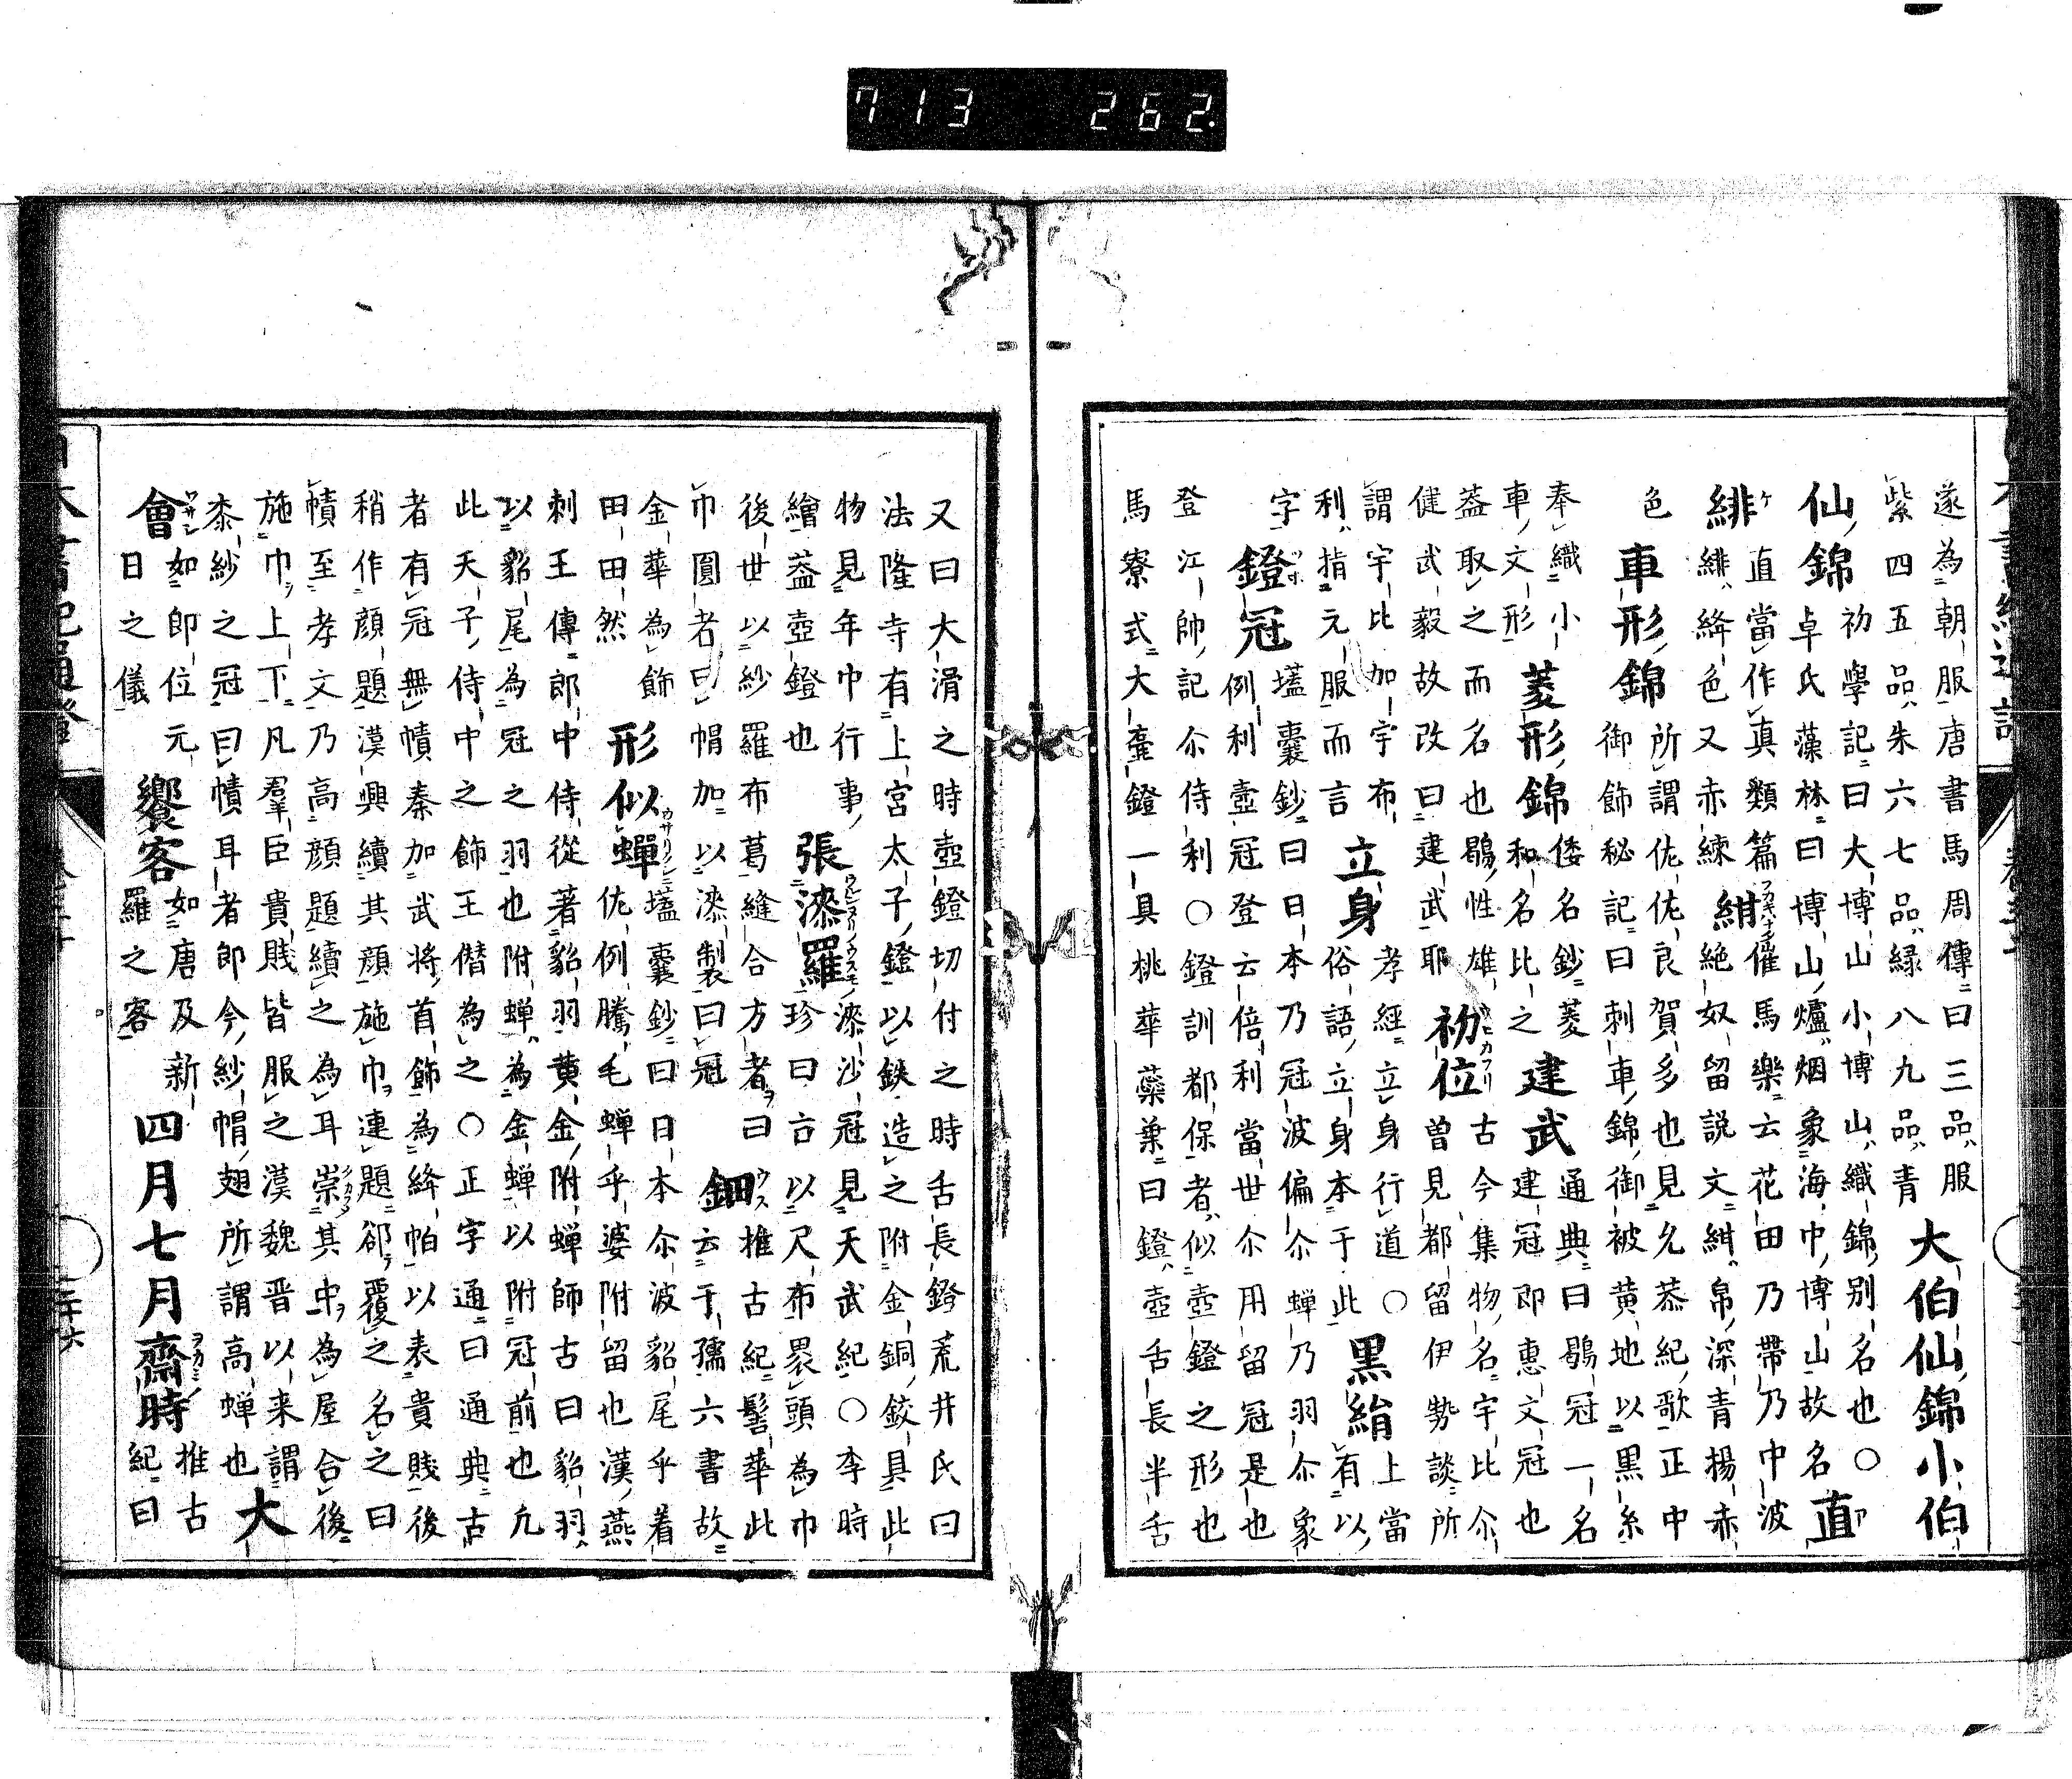 713 262.
遂為朝服唐書馬周傳曰三品服
紫四五品朱六七品緑八九品青 大伯仙錦小伯
仙錦 初學記曰大博山小博山織錦別名也〇
卓氏藻林曰博山爐烟象海中博山故名 直
直當作真類篇催馬樂云花田乃帶乃中波
緋 緋絳色又赤練 紺 絶奴留説文紺帛深青揚赤
色 車形錦 所謂佐佐良賀多也見允恭紀歌正中
御飾秘記曰刺車錦御被黄地以黒糸
奉織小 菱形錦 倭名鈔菱 建武 通典曰鶡冠一名
車文形 和名比之 建冠即恵文冠也
葢取之而名也鶡性雄 初位 古今集物名宇比尒
健武毅故改曰建武耶 曽見都留伊勢談所
謂宇比加宇布 立身 孝經立身行道〇 黒絹 上當
利指元服而言 俗語立身本于此 有以
字 鐙冠 壒囊鈔曰日本乃冠波偏尒蝉乃羽尒象
例利壺冠登云倍利當世尒用留冠是也
登江帥記尒侍利〇鐙訓都保者似壺鐙之形也
馬寮式大壺鐙一具桃華蘂葉曰鐙壺舌長半舌
又曰大滑之時壺鐙切付之時舌長鐙荒井氏曰
法隆寺有上宮太子鐙以鉄造之附金銅鉸具此
物見年中行事 張漆羅 漆沙冠見天武紀〇李時
繪葢壺鐙也 珍曰古以尺布裹頭為巾
後世以紗羅布葛縫合方者曰 鈿 推古紀髻華此
巾圓者曰帽加以漆製曰冠 云于孺六書故
金華為飾 形似蝉 壒囊鈔曰日本尒波貂尾乎着
田田然 佐例騰毛蝉乎婆附留也漢燕
刺王傳郎中侍從著貂羽黄金附蝉師古曰貂羽
以貂尾為冠之羽也附蝉為金蝉以附冠前也凢
此天子侍中之飾王僣為之〇正字通曰通典古
者有冠無幘秦加武將首飾為絳帕以表貴賤後
稍作顔題漢興續其顔施巾連題郤覆之名之曰
幘至孝文乃高顔題續之為耳崇其中為屋合後
施巾上下凡羣臣貴賤皆服之漢魏晋以来謂
桼紗之冠曰幘耳者郎今紗帽翅所謂高蝉也 大
會 如即位元 饗客 如唐及新 四月七月齋時 推古
日之儀 羅之客 紀曰
二十六